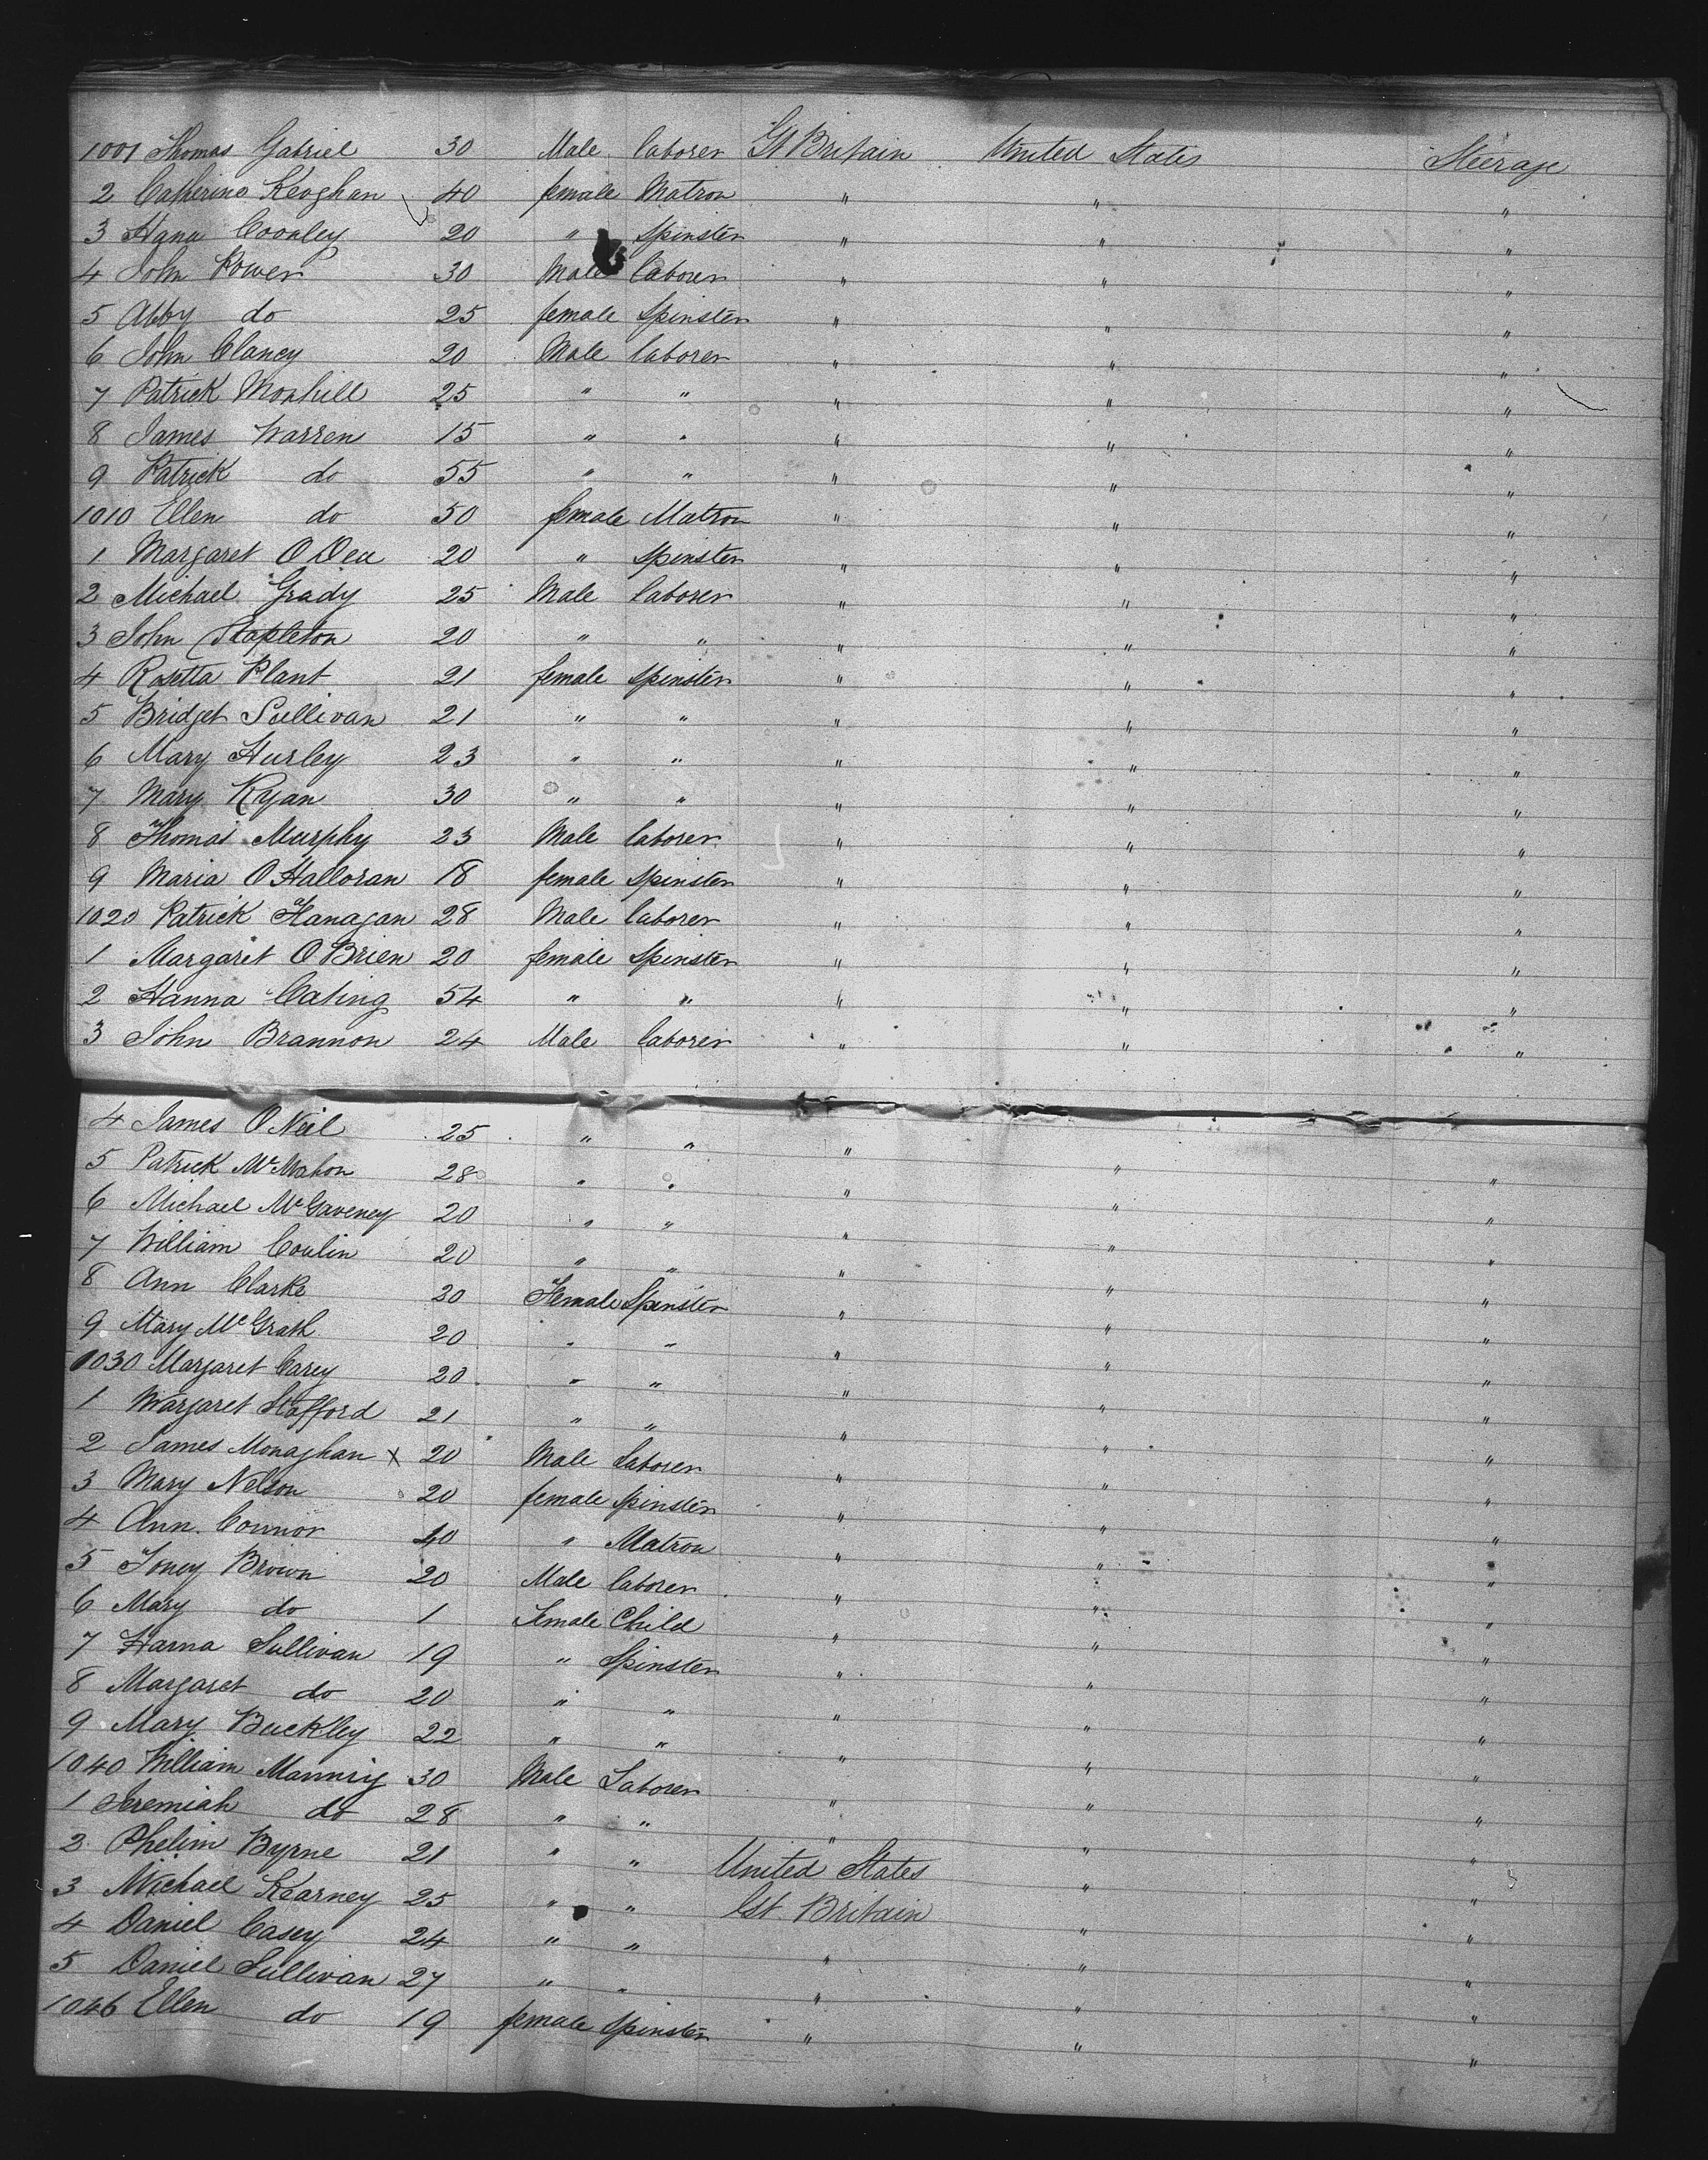 1001 Thomas Gabriel 30 Male laborer Gt Britain United States Steerage
2 Catherine Keoghan 40 female Matron " " "
3 Hana Coonley 20 " Spinster " " "
4 John Power 30 Male laborer " " "
5 Abby do 25 female Spinster " " "
6 John Clancy 20 Male laborer " " "
7 Patrick Monhill 25 " " " " "
8 James Warren 15 " " " " "
9 Patrick do 55 " " " " "
1010 Ellen do 50 female Matron " " "
1 Margaret O Dea 20 " Spinster " " "
2 Michael Grady 25 Male laborer " " "
3 John Stapleton 20 " " " " "
4 Rosetta Plant 21 female Spinster " " "
5 Bridget Sullivan 21 " " " " "
6 Mary Hurley 23 " " " " "
7 Mary Ryan 30 " " " " "
8 Thomas Murphy 23 Male laborer " " "
9 Maria O Halloran 18 female Spinster " " "
1020 Patrick Flanagan 28 Male laborer " " "
1 Margaret O Brien 20 female Spinster " " "
2 Hanna Cating 54 " " " " "
3 John Brannon 24 Male laborer " " "
4 James O Neil 25 " " " " "
5 Patrick McMahon 28 " " " " "
6 Michael McGaveney 20 " " " " "
7 William Coulin 20 " " " " "
8 Ann Clarke 20 Female Spinster " " "
9 Mary McGrath 20 " " " " "
1030 Margaret Carey 20 " " " " "
1 Margaret Stafford 21 " " " " "
2 James Monaghan x 20 Male Laborer " " "
3 Mary Nelson 20 female Spinster " " "
4 Ann Connor 40 " Matron " " "
5 Toney Brown 20 Male laborer " " "
6 Mary do 1 Female Child " " "
7 Harna Sullivan 19 " Spinster " " "
8 Margaret do 20 " " " " "
9 Mary Buckley 22 " " " " "
1040 William Manning 30 Male Laborer " " "
1 Jeremiah do 28 " " " " "
2 Phelim Byrne 21 " " United States " "
3 Michael Kearney 25 " " Gt Britain " "
4 Daniel Casey 24 " " " " "
5 Daniel Sullivan 27 " " " " "
1046 Ellen do 19 female Spinster " " "